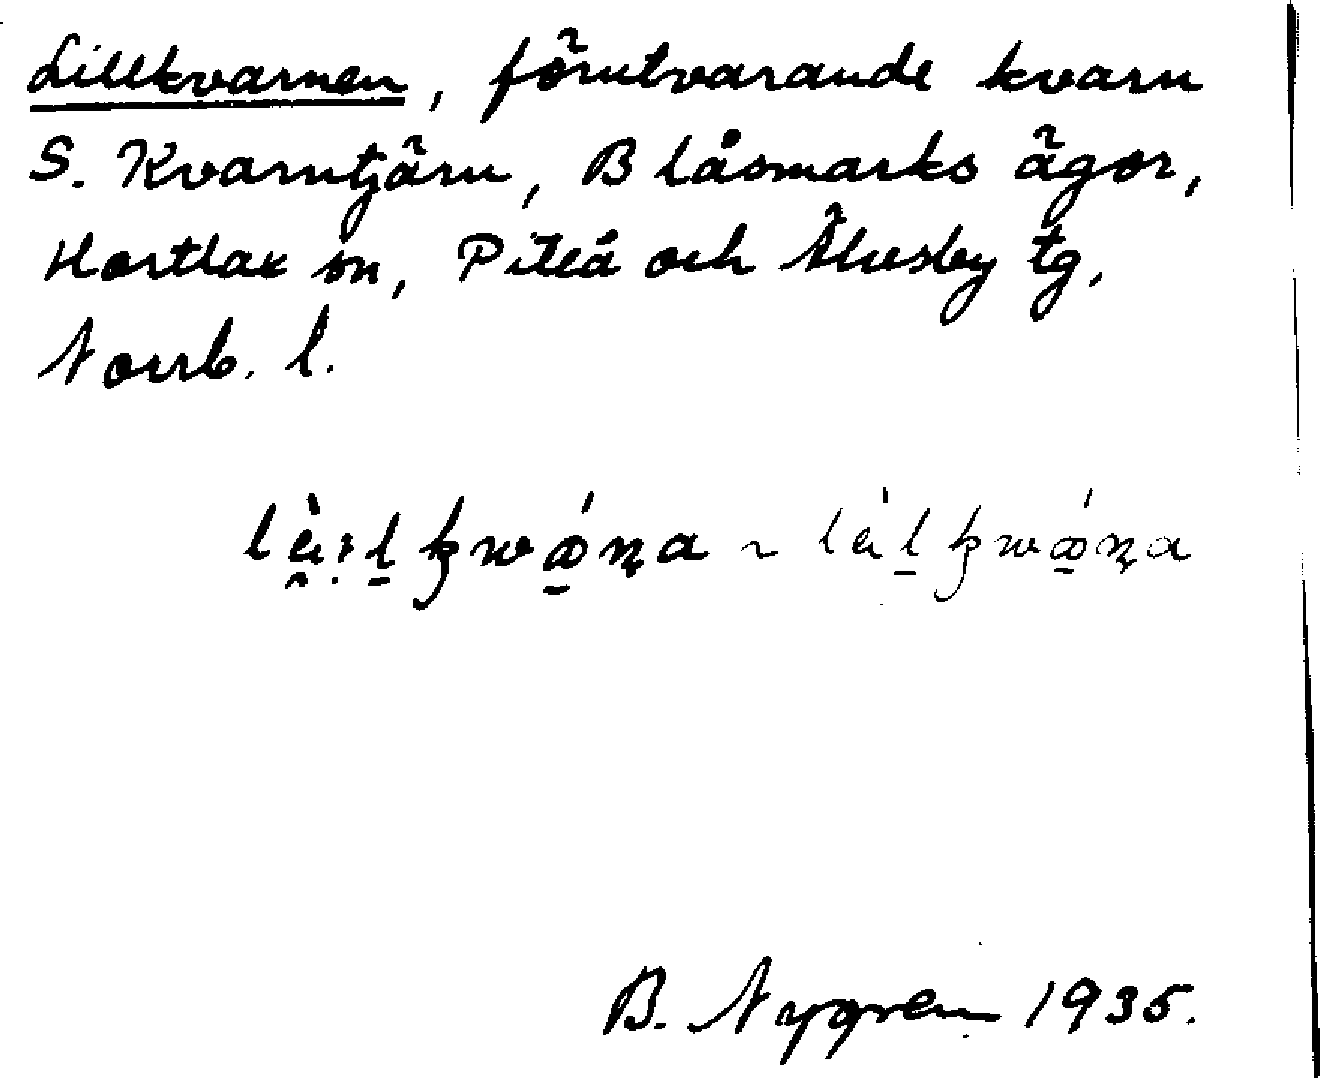 Lillkvarnen, förutvarande kvarn
S. Kvarntjärn, Blåsmarks ägor,
Hortlax sn, Piteå och Älvsby tg,
Norrb. l.
B. Nygren 1935.